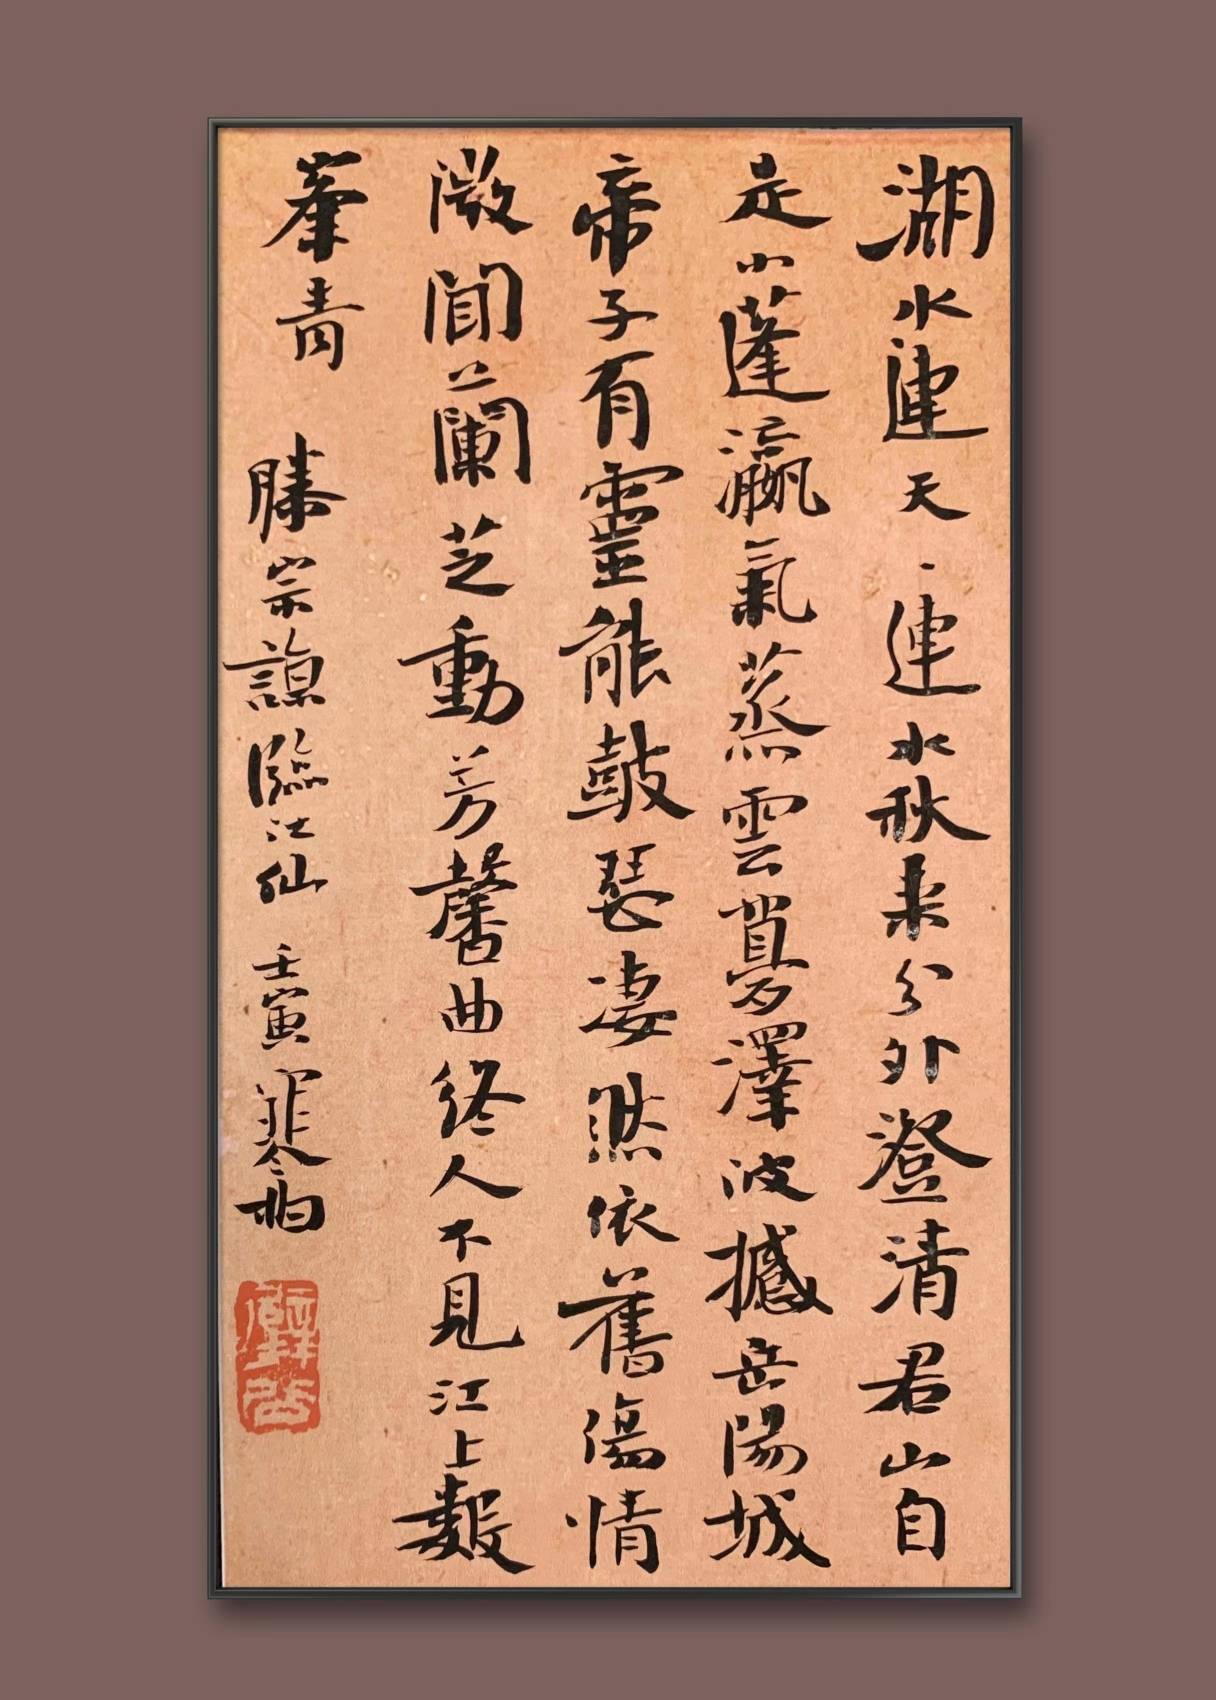 湖水連天、連水秋来分外澄清君山自
是小蓬瀛氣蒸雲夢澤波撼岳陽城
帝子有靈能鼓瑟凄然依舊傷情
微聞蘭芝動芳馨曲終人不見江上數
峯青 滕宗諒臨江仙 壬寅